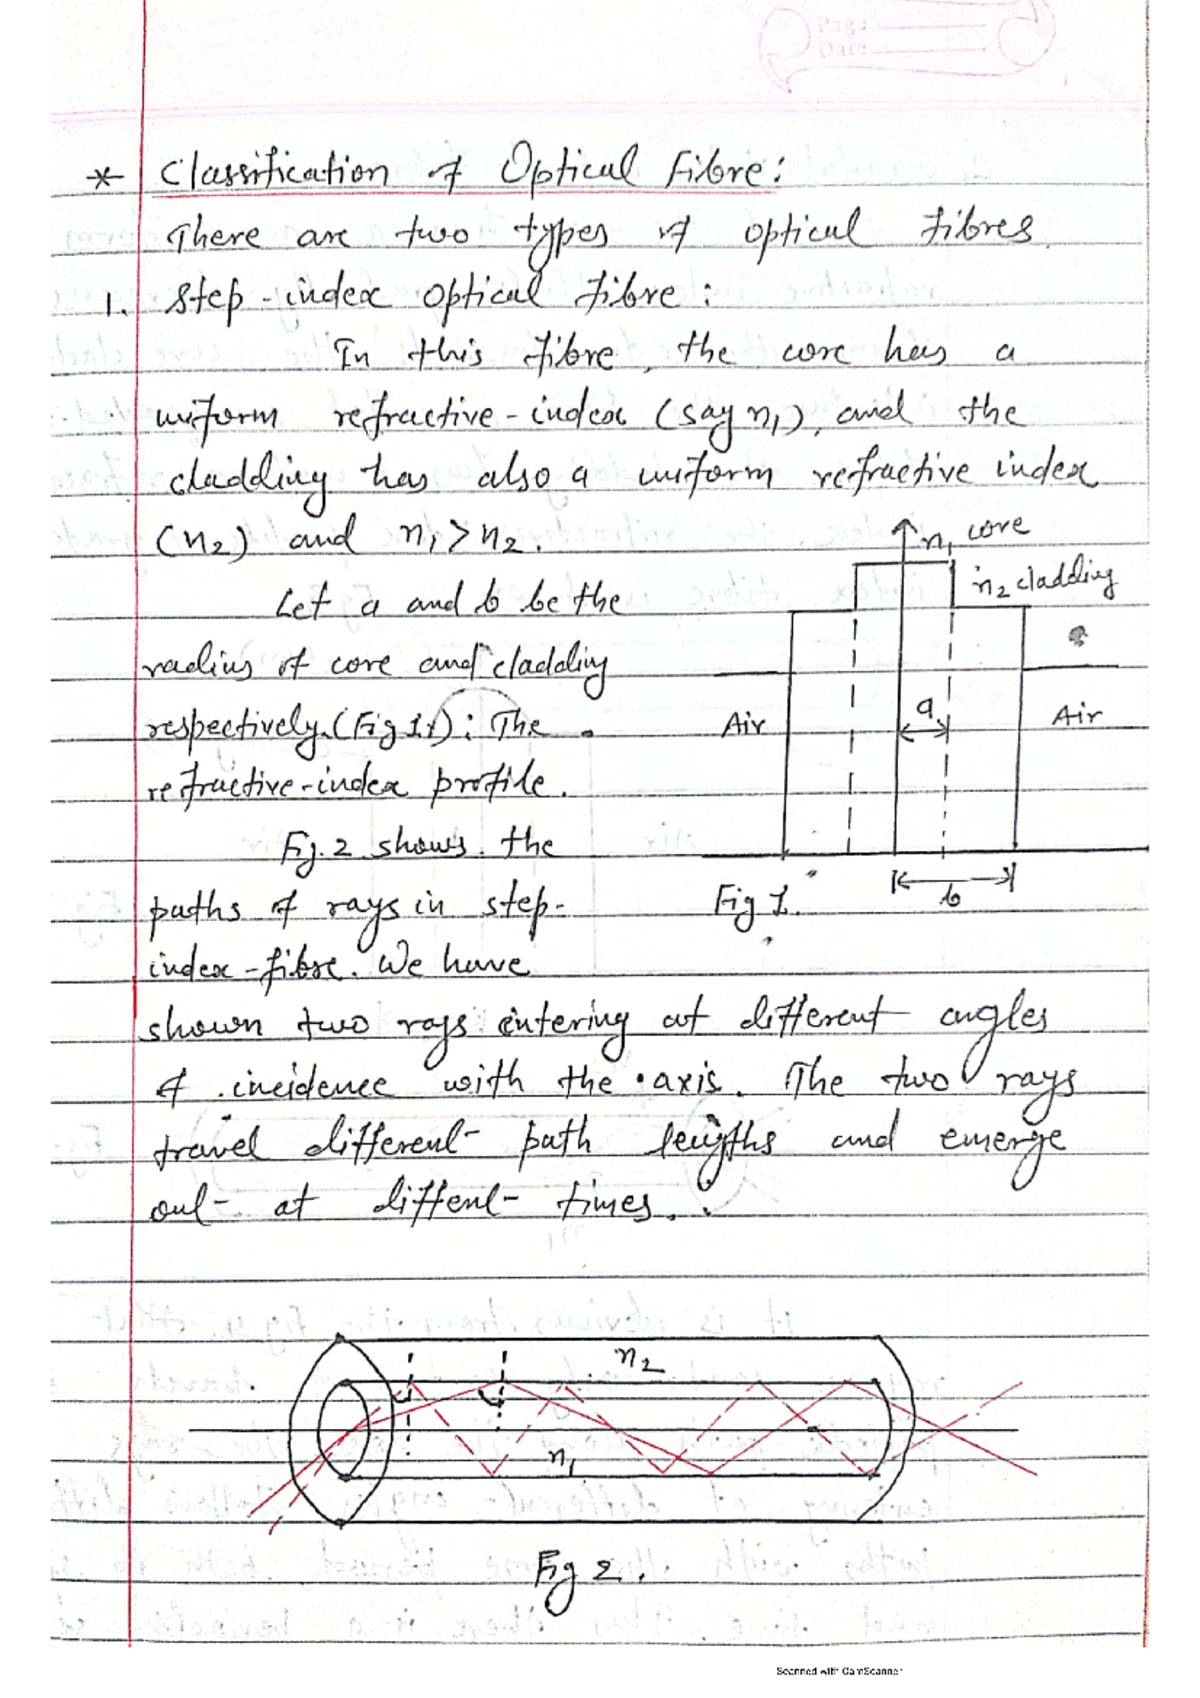 Page
Date
* Classification of Optical Fibre:
There are two types of optical fibres.
1. Step-index optical fibre:
In this fibre, the core has a
uniform refractive-index (say n₁), and the
cladding has also a uniform refractive index
(n₂) and n₁>n₂.
n₁ core
n₂ cladding
Let a and b be the
radius of core and cladding
respectively. (Fig 1.): The
refractive-index profile.
Air
a
Air
Fig. 2 shows the
paths of rays in step-
index-fibre. We have
b
Fig 1.
shown two rays entering at different angles
of incidence with the axis. The two rays
travel different path lengths and emerge
out at diffent times.
n₂
n₁
Fig 2.
Scanned with CamScanner